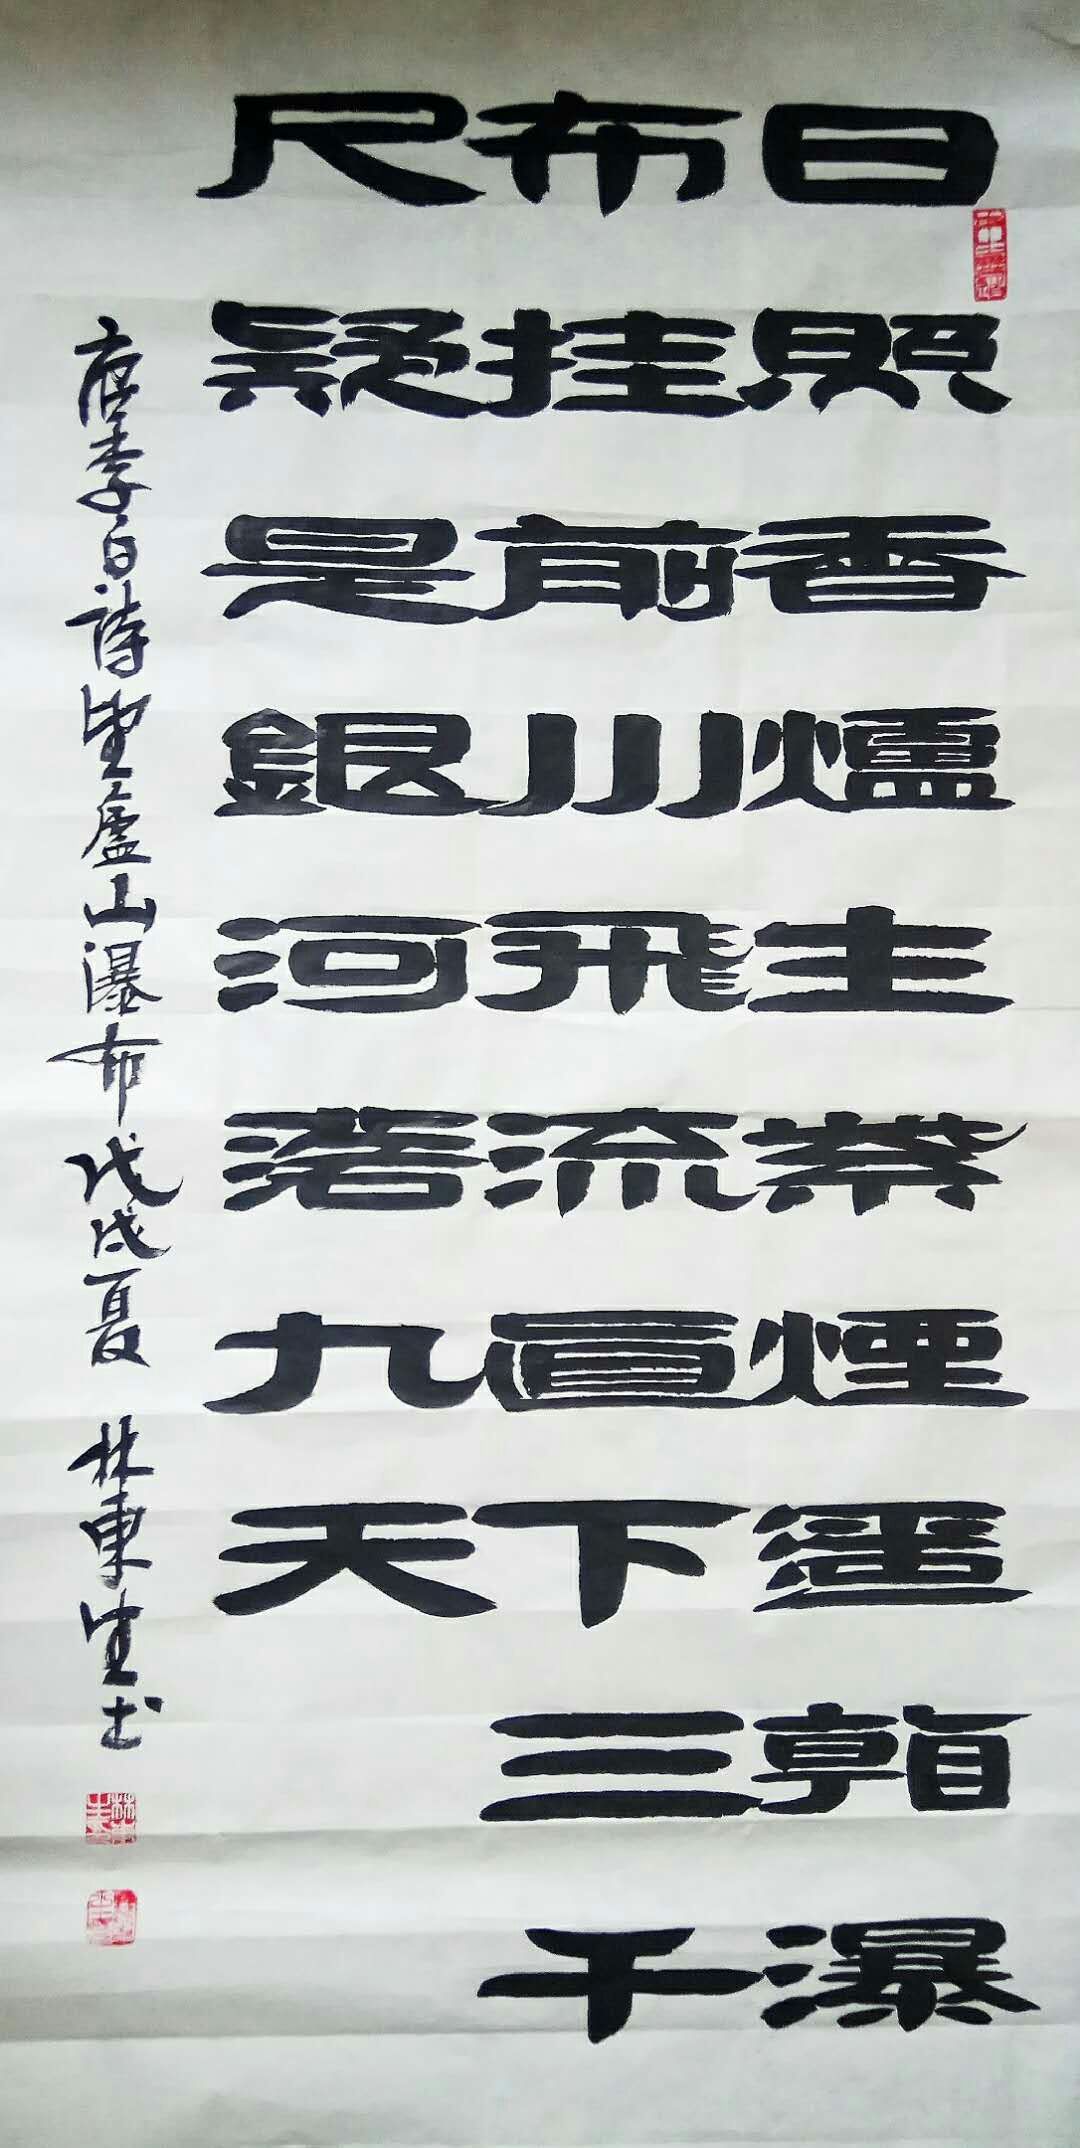 日照香爐生紫煙遥看瀑
布挂前川飛流直下三千
尺疑是銀河落九天
唐李白詩望廬山瀑布戊戌夏 林東生书